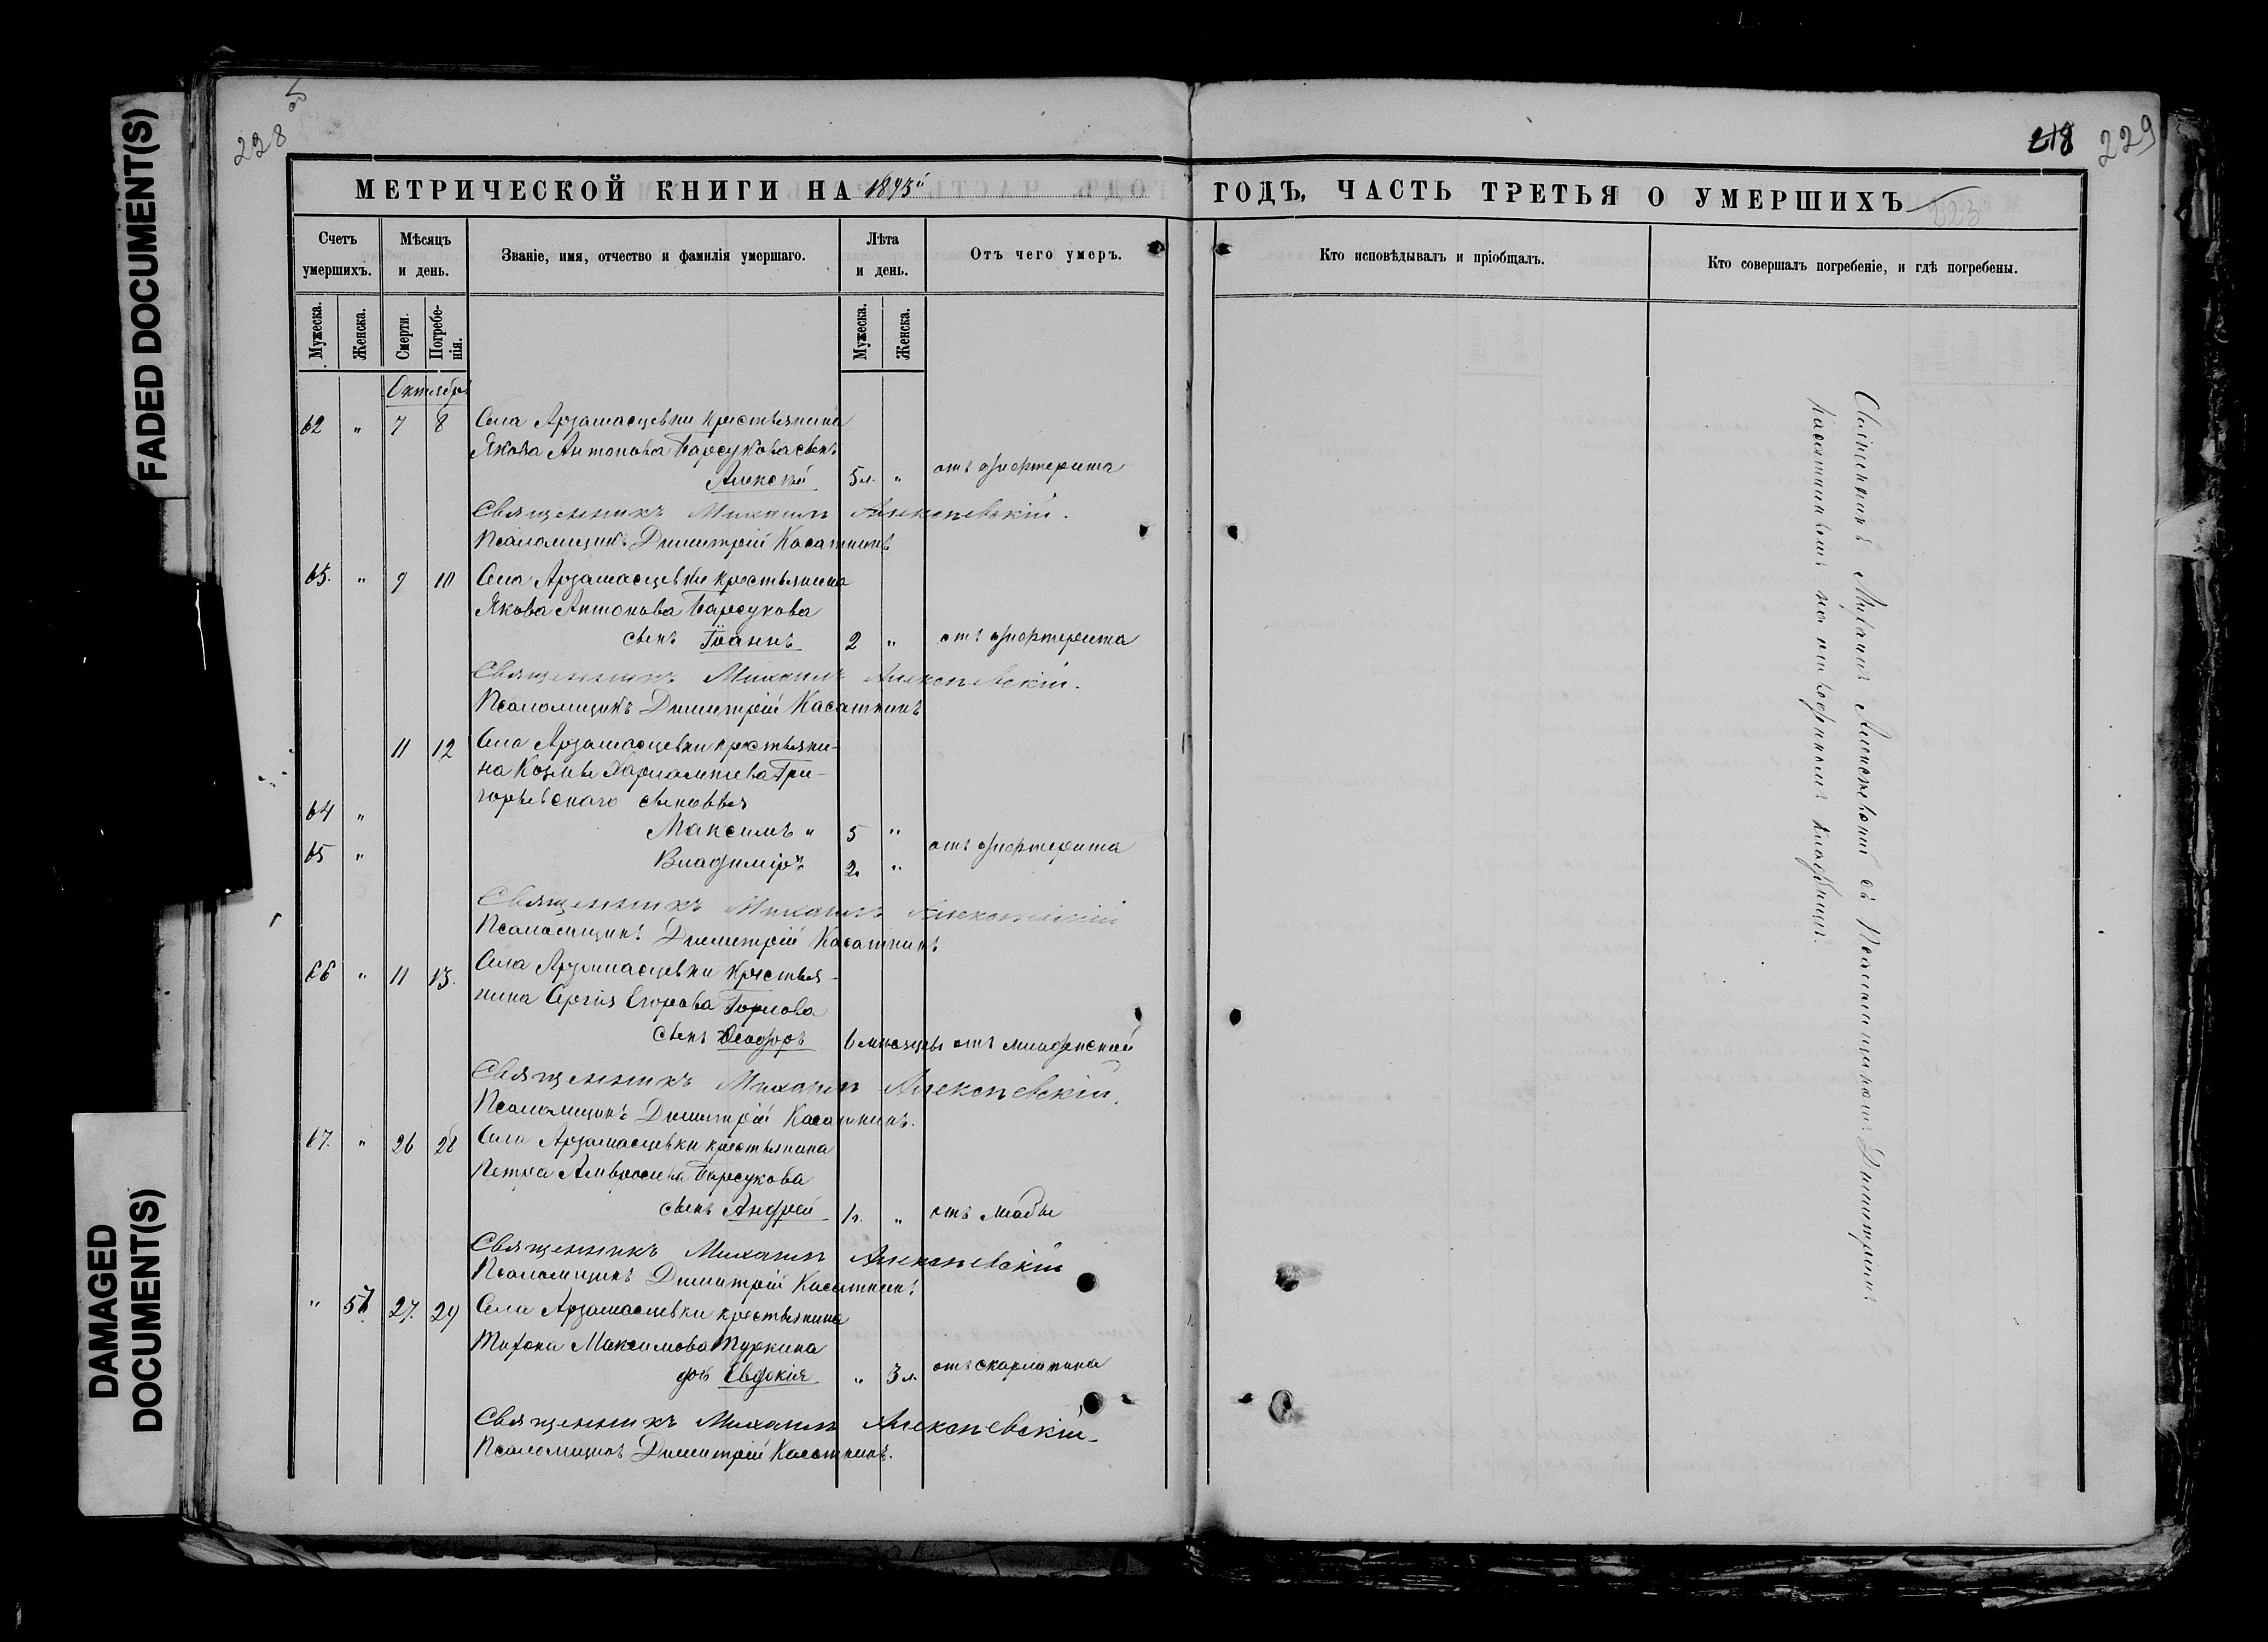 FADED DOCUMENT(S)
DAMAGED
DOCUMENT(S)
228
218 229
МЕТРИЧЕСКОЙ КНИГИ НА 1893й
ГОДЪ, ЧАСТЬ ТРЕТЬЯ О УМЕРШИХЪ
223
Счетъ умершихъ.
Мѣсяцъ и день.
Званіе, имя, отчество и фамилія умершаго.
Лѣта и день.
Отъ чего умеръ.
Кто исповѣдывалъ и пріобщалъ.
Кто совершалъ погребеніе, и гдѣ погребены.
Мужеска.
Женска.
Смерти.
Погребе-
нія.
Мужеска.
Женска.
Октябрь
62 " 7 8 Села Арзамасцевки крестьянина
Якова Антонова Барсукова сынъ
Алексѣй 5 л. " отъ дифтерита
Священникъ Михаилъ Алексѣевскій.
Псаломщикъ Димитрій Касаткинъ
63. " 9 10 Села Арзамасцевки крестьянина
Якова Антонова Барсукова
сынъ Іоаннъ 2 " отъ дифтерита
Священникъ Михаилъ Алексѣевскій.
Псаломщикъ Димитрій Касаткинъ
11 12 Села Арзамасцевки крестьяни-
на Козмы Харлампіева Гри-
горьевскаго сыновья
64 " Максимъ " 5 "
65 " Владиміръ 2 " отъ дифтерита
Священникъ Михаилъ Алексѣевскій
Псаломщикъ Димитрій Касаткинъ
66 " 11 13. Села Арзамасцевки крестья-
нина Сергія Егорова Горлова
сынъ Ѳеодоръ 6 мѣсяцевъ отъ младенской
Священникъ Михаилъ Алексѣевскій.
Псаломщикъ Димитрій Касаткинъ.
67. " 26 28 Села Арзамасцевки крестьянина
Петра Амвросіева Барсукова
сынъ Андрей " отъ
Священникъ Михаилъ Алексѣевскій
Псаломщикъ Димитрій Касаткинъ
" 57 27. 29 Села Арзамасцевки крестьянина
Тихона Максимова Туркина
дочь Евдокія " 3 л. отъ скарлатина
Священникъ Михаилъ Алексѣевскій
Псаломщикъ Димитрій Касаткинъ.
Священникъ Михаилъ Алексѣевскій съ Псаломщикомъ Димитріемъ
Касаткинымъ на кладбищѣ.